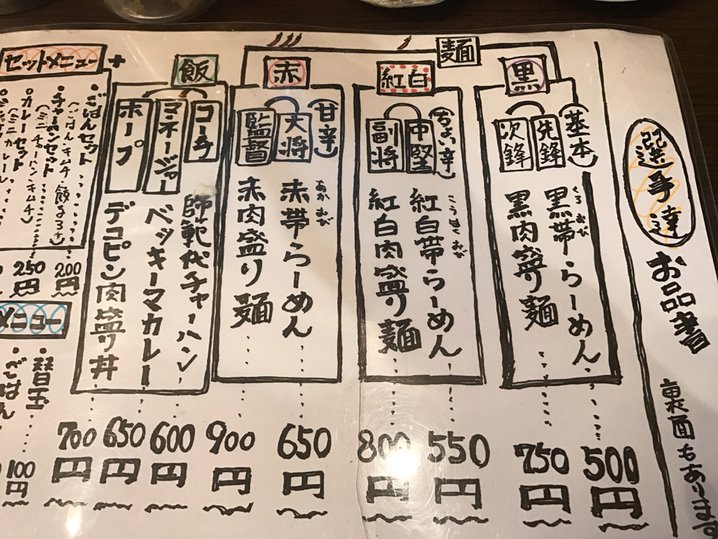 選手達
お品書
裏面もあります
麺
黒
(基本)
先鋒
黒帯らーめん
くろおび
500円
次鋒
黒肉盛り麺
750円
紅白
(ちょい辛)
中堅
紅白帯らーめん
こうはくおび
550円
副将
紅白肉盛り麺
800円
赤
(甘辛)
大将
赤帯らーめん
あかおび
650円
監督
赤肉盛り麺
900円
飯
コーチ
師範代チャーハン
600円
マネージャー
ベッキーマカレー
650円
ホープ
デコピン肉盛り丼
700円
セットメニュー
ごはんセット
200円
チャーハンセット
(ミニチャーハン キムチ)
250円
カレーセット
メニュー
替玉
100円
ごはん